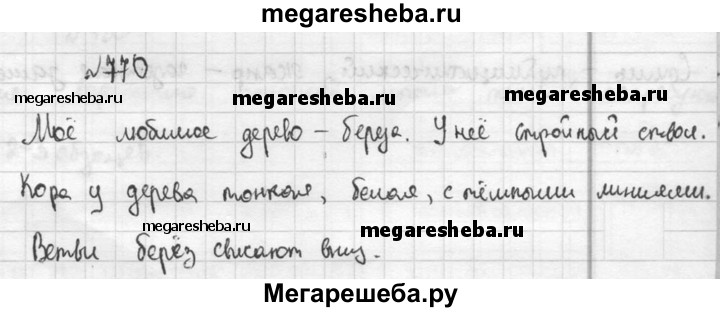 megaresheba.ru
№770
megaresheba.ru megaresheba.ru megaresheba.ru
Моё любимое дерево – береза. У неё стройный ствол.
Кора у дерева тонкая, белая, с тёмными линиями.
megaresheba.ru megaresheba.ru
Ветви берёз свисают вниз.
Мегарешеба.ру